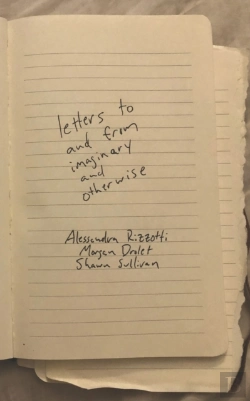 letters to
and from
imaginary
and
otherwise
Alessandra Rizzotti
Morgan Drolet
Shawn Sullivan